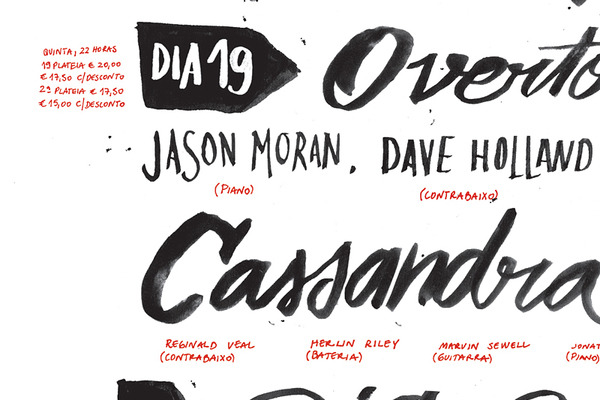 QUINTA, 22 HORAS
1ª PLATEIA € 20,00
€ 17,50 C/DESCONTO
2ª PLATEIA € 17,50
€ 15,00 C/DESCONTO
DIA 19
JASON MORAN, DAVE HOLLAND
(PIANO) (CONTRABAIXO)
Cassandra
REGINALD VEAL HERLIN RILEY MARVIN SEWELL
(CONTRABAIXO) (BATERIA) (GUITARRA) (PIANO)